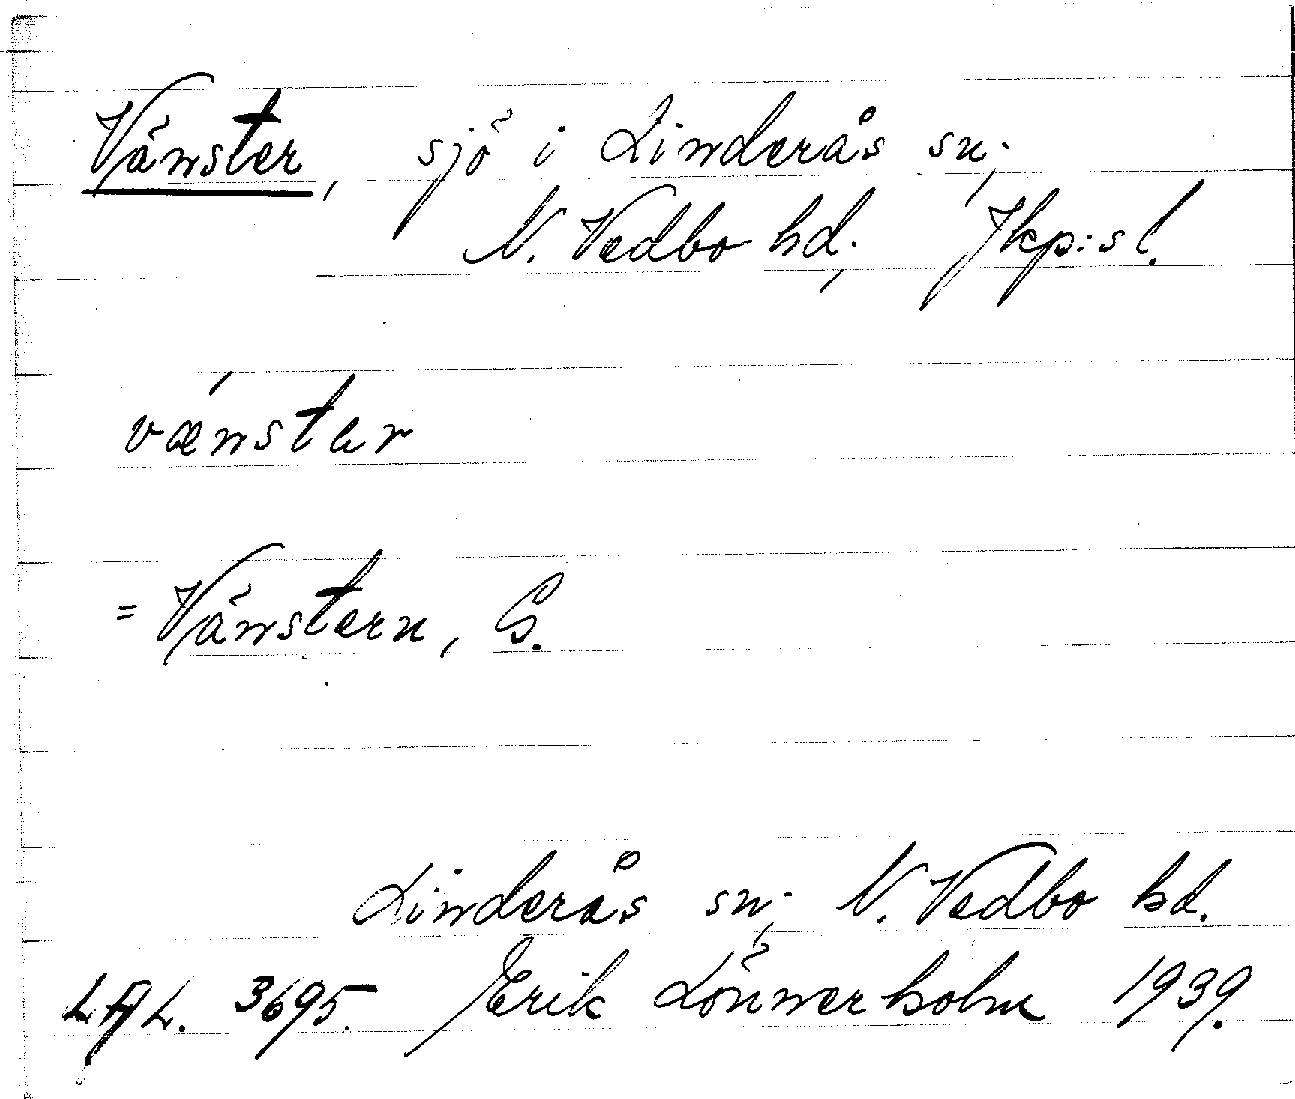 Vänster, sjö i Linderås sn;
N. Vedbo hd; Jkp:sl.
vænstər
= Vänstern, G.
Linderås sn; N. Vedbo hd.
LAL. 3695. Erik Lönnerholm 1939.